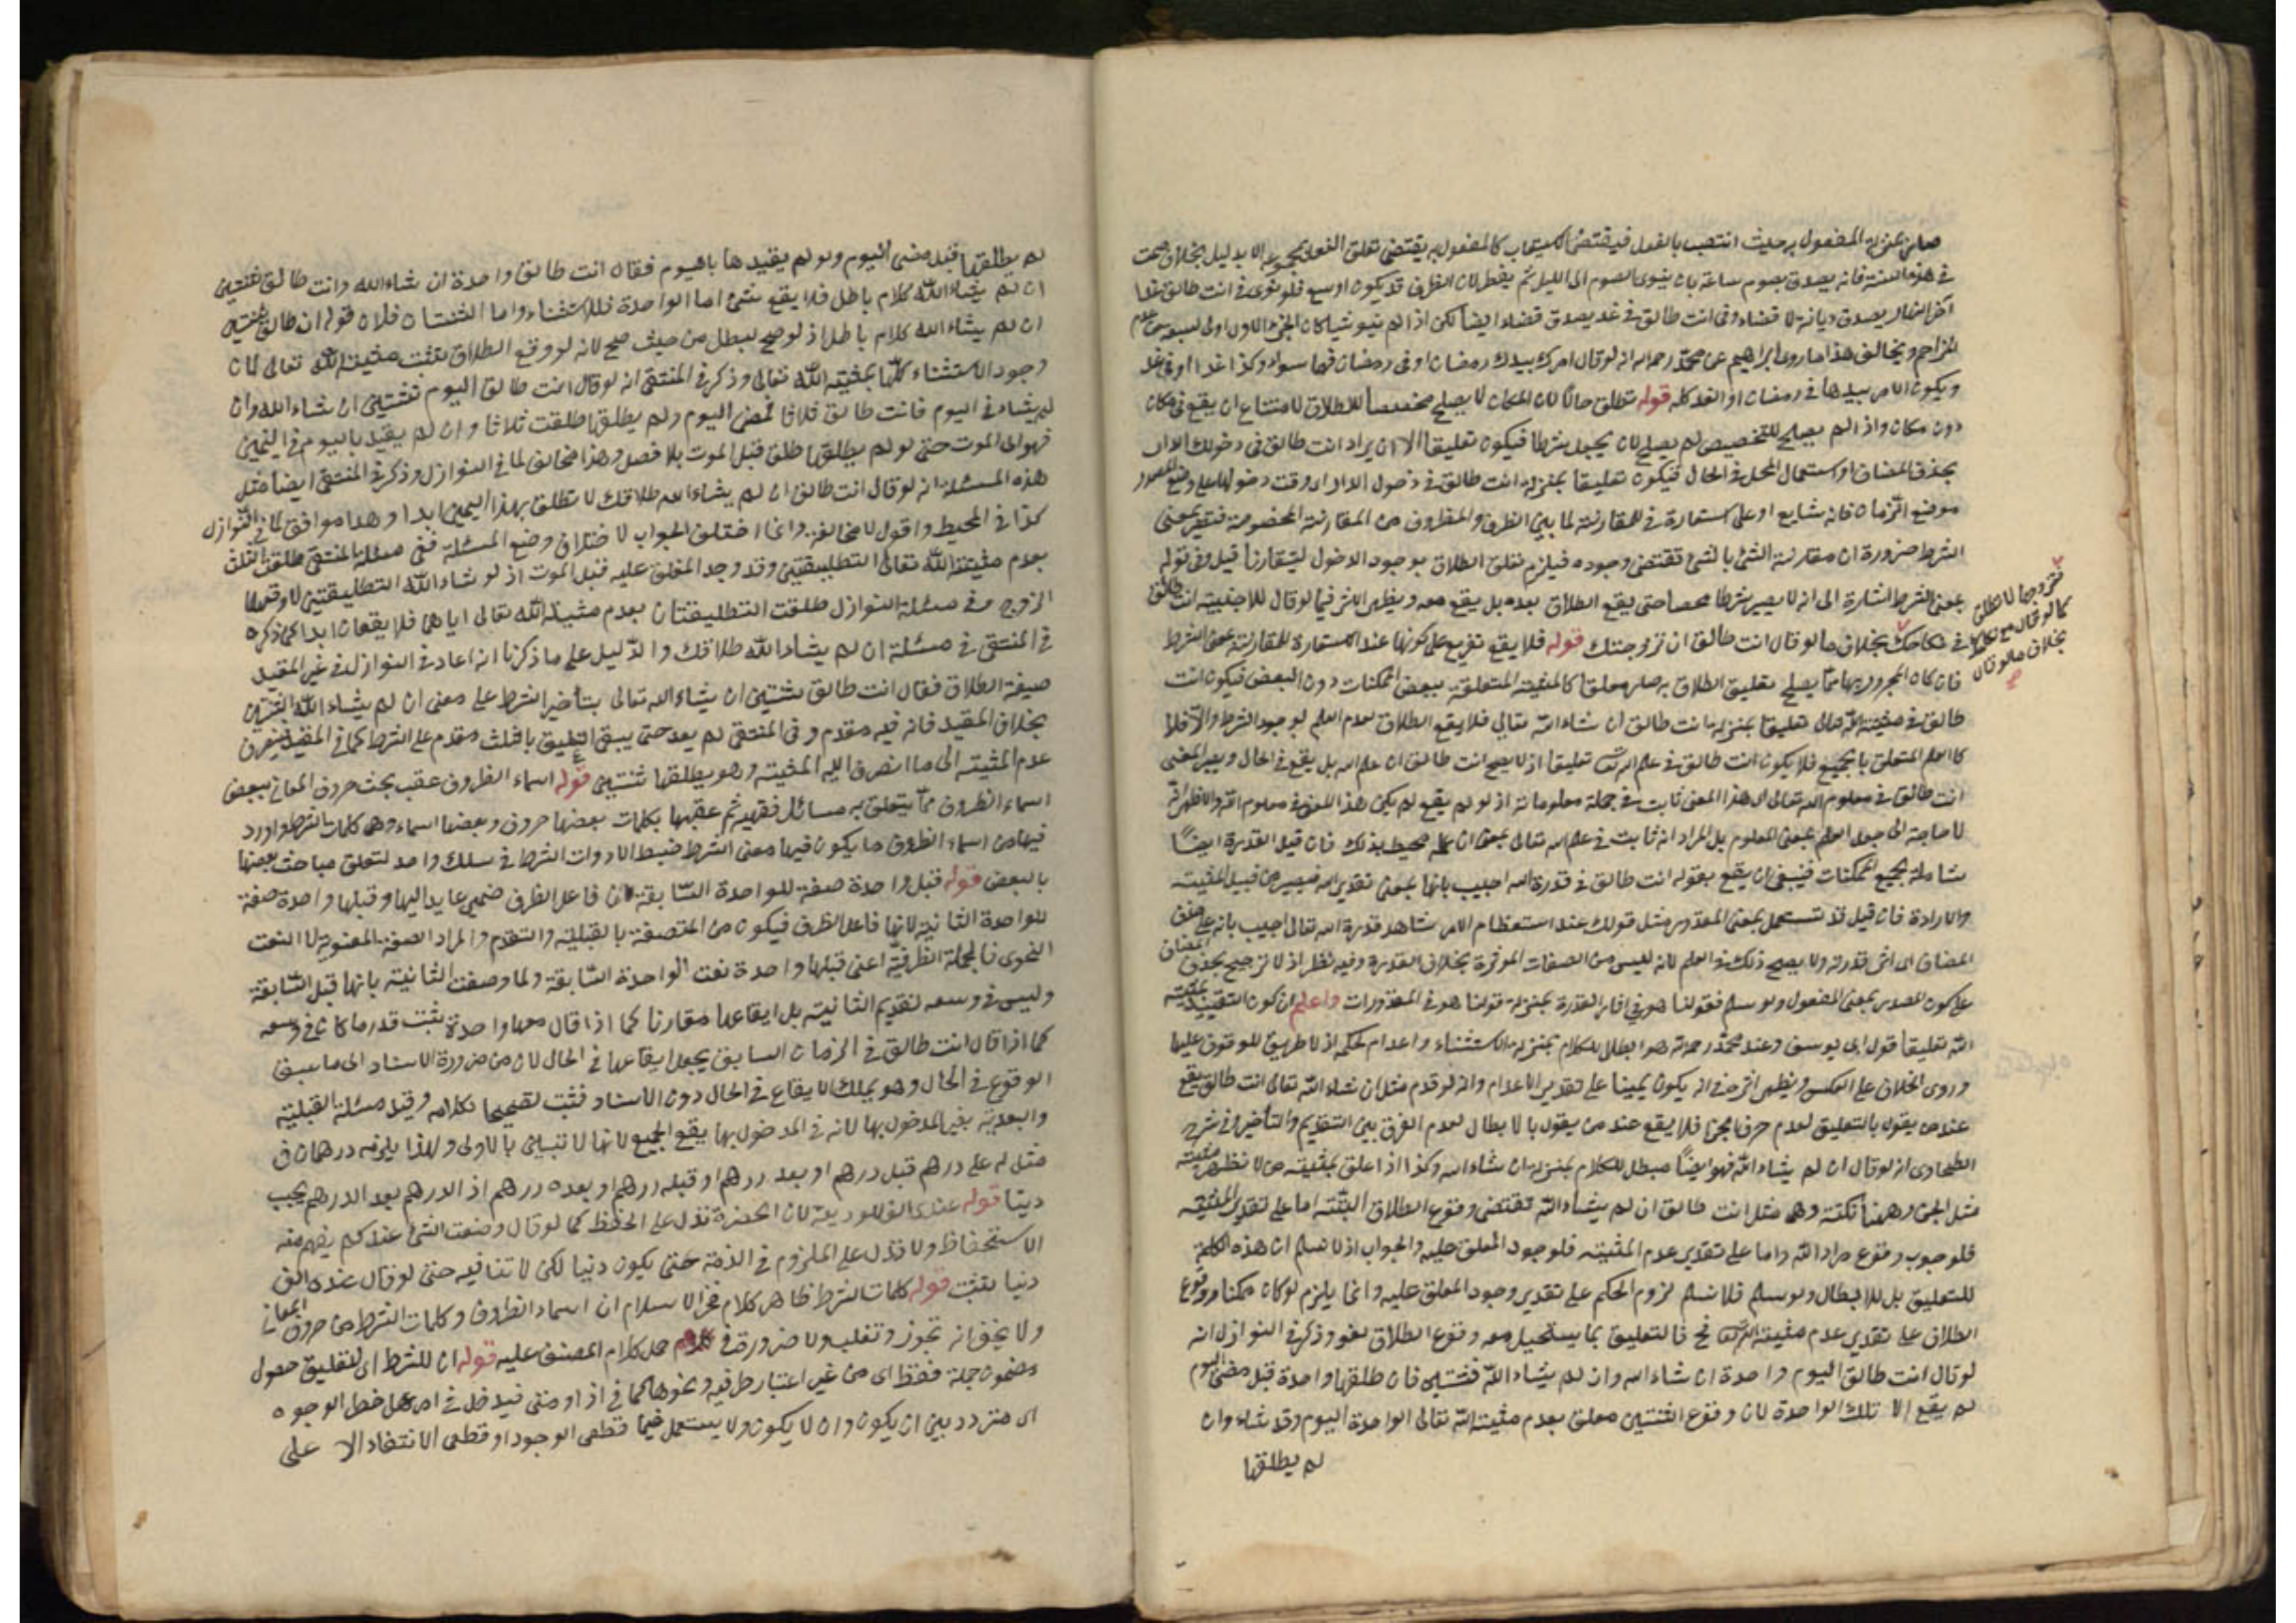 صار بمنزلة المفعول به حيث انتصب بالفعل فيقتضي الاستيعاب كالمفعول به يقتضي تعلق الفعل بمجموعه الا بدليل بخلاف صمت
في هذه السنة فانه يصدق بصوم ساعة بان ينوي الصوم الى الليل ثم يفطر لان الظرف قد يكون اوسع فلو نوى في انت طالق غدا
آخر النهار يصدق ديانة لا قضاء وفي انت طالق في غد يصدق قضاء ايضا لكن اذا لم ينو شيا كان الجزء الاول اولى لسبقه مع عدم
المزاحم ويخالف هذا ما روى ابراهيم عن محمد رحمه الله انه لو قال امرك بيدك رمضان او في رمضان فهما سواء وكذا غدا او في غد
ويكون الامر بيدها في رمضان او الغد كله قوله تطلق حالا لان المكان لا يصلح مخصصا للطلاق لامتناع ان يقع في مكان
دون مكان واذا لم يصلح للتخصيص لم يصلح لان يجعل شرطا فيكون تعليقا الا ان يراد انت طالق في دخولك الدار
بحذف المضاف او استعمال المحل في الحال فيكون تعليقا بمنزلة انت طالق في دخول الدار اي وقت دخولها على وضع المصدر
موضع الزمان فانه شايع او على استعارة في للمقارنة لما بين الظرف والمظروف من المقارنة المخصوصة فتصير بمعنى
الشرط ضرورة ان مقارنة الشئ بالشئ تقتضي وجوده فيلزم تعلق الطلاق بوجود الدخول ليتقارنا قيل وفي قوله
بمعنى الشرط اشارة الى انه لا يصير شرطا محضا حتى يقع الطلاق بعده بل يقع معه ويظهر الاثر فيما لو قال للاجنبية انت طالق
في نكاحك بخلاف ما لو قال انت طالق ان تزوجتك قوله فلا يقع تفريع على كونها عند الاستعارة للمقارنة بمعنى الشرط
فتزوجها لا تطلق
كما لو قال مع نكاحك
بخلاف ما لو قال
فان كان المجرور بها مما يصلح تعليق الطلاق به صار معلقا كالمشيئة المتعلقة ببعض الممكنات دون البعض فيكون انت
طالق في مشيئة الله تعالى تعليقا بمنزلة انت طالق ان شاء الله تعالى فلا يقع الطلاق لعدم العلم بوجود الشرط والا فلا
كالعلم المتعلق بالجميع فلا يكون انت طالق في علم الله تعليقا اذ لا يصح انت طالق ان علم الله بل يقع في الحال ويصير المعنى
انت طالق في معلوم الله تعالى اي هذا المعنى ثابت في جملة معلوماته اذ لو لم يقع لم يكن هذا المعنى في معلوم الله والاظهر انه
لا حاجة الى جعل العلم بمعنى المعلوم بل المراد انه ثابت في علم الله تعالى بمعنى ان علمه محيط بذلك فان قيل القدرة ايضا
شاملة لجميع الممكنات فينبغي ان يقع بقوله انت طالق في قدرة الله اجيب بانها بمعنى تقدير الله فيصير من قبيل المشيئة
والارادة فان قيل قد تستعمل بمعنى المقدور مثل قولك عند استعظام الامر شاهد قدرة الله تعالى اجيب بانه على حذف المضاف
المضاف اي اثر قدرته ولا يصح ذلك في العلم لانه ليس من الصفات المؤثرة بخلاف القدرة وفيه نظر اذ لا ترجيح بحذف
على كون المصدر بمعنى المفعول ولو سلم فقولنا هو في اثار القدرة بمنزلة قولنا هو في المقدورات واعلم ان كون التقييد بمشيئة
الله تعليقا قول ابي يوسف وعند محمد رحمه الله هو ابطال للكلام بمنزلة الاستثناء واعدام لحكمه اذ لا طريق للوقوف عليها
وروى الخلاف على العكس ويظهر اثره في انه يكون يمينا على تقدير الاعدام وانه لو قدم مثل ان شاء الله تعالى انت طالق يقع
عند من يقول بالتعليق لعدم حرف الجزا فلا يقع عند من يقول بالابطال لعدم الفرق بين التقديم والتأخير وفي شرح
الطحاوي انه لو قال ان لم يشاء الله فهو ايضا مبطل للكلام بمنزلة ان شاء الله وكذا اذا علق بمشيئة من لا تظهر مشيئته
مثل الجن وههنا نكتة وهي مثل انت طالق ان لم يشاء الله تقتضي وقوع الطلاق البتة اما على تقدير المشيئة
فلوجوب وقوع مراد الله واما على تقدير عدم المشيئة فلوجود المعلق عليه والجواب انا لا نسلم ان هذه الكلمة
للتعليق بل للابطال ولو سلم فلا نسلم لزوم الحكم على تقدير وجود المعلق عليه وانما يلزم لو كان ممكنا ووقوع
الطلاق على تقدير عدم مشيئة الله مح فالتعليق بما يستحيل معه وقوع الطلاق لغو وذكر في النوازل انه
لو قال انت طالق اليوم واحدة ان شاء الله وان لم يشاء الله فثنتين فان طلقها واحدة قبل مضي اليوم
لم يقع الا تلك الواحدة لان وقوع الثنتين معلق بعدم مشيئة الله تعالى الواحدة اليوم وقد شاء وان
لم يطلقها
لم يطلقها قبل مضي اليوم ولو لم يقيدها باليوم فقال انت طالق واحدة ان شاء الله وانت طالق ثنتين
ان لم يشاء الله كلام باطل فلا يقع شئ اما الواحدة فللاستثناء واما الثنتان فلان قوله انت طالق ثنتين
ان لم يشاء الله كلام باطل اذ لو صح لبطل من حيث صح لانه لو وقع الطلاق يثبت مشيئة الله تعالى لان
وجود الاشياء كلها بمشيئة الله تعالى وذكر في المنتقى انه لو قال انت طالق اليوم ثنتين ان شاء الله وان
لم يشاء في اليوم فانت طالق ثلاثا فمضى اليوم ولم يطلقها طلقت ثلاثا وان لم يقيد باليوم في اليمين
فهو الى الموت حتى لو لم يطلقها طلق قبل الموت بلا فصل وهذا مخالف لما في النوازل وذكر في المنتقى ايضا مثل
هذه المسئلة انه لو قال انت طالق ان لم يشاء الله طلاقك لا تطلق بهذا اليمين ابدا وهذا موافق لما في النوازل
كذا في المحيط واقول لا مخالفة وانما اختلف الجواب لاختلاف وضع المسئلة ففي مسئلة المنتقى طلقت الثلث
بعدم مشيئة الله تعالى التطليقتين وقد وجد المعلق عليه قبيل الموت اذ لو شاء الله التطليقتين لاوقعهما
الزوج وفي مسئلة النوازل طلقت التطليقتان بعدم مشيئة الله تعالى اياهما فلا يقعان ابدا كما ذكره
في المنتقى في مسئلة ان لم يشاء الله طلاقك والدليل على ما ذكرنا انه اعاد في النوازل في غير المقيد
صيغة الطلاق فقال انت طالق ثنتين ان يشاء الله تعالى بتأخير الشرط على معنى ان لم يشاء الله الثنتين
بخلاف المقيد فانه فيه مقدم وفي المنتقى لم يعد حتى يبقى التعليق بالثلث مقدم على الشرط كما في المقيد فينصرف
عدم المشيئة الى ما انصرف اليه المشيئة وهو يطلقها ثنتين قوله اسماء الظروف عقب بحث حروف المعاني ببعض
اسماء الظروف مما يتعلق به مسائل فقهية ثم عقبها بكلمات بعضها حروف وبعضها اسماء وهي كلمات الشرط واورد
فيها من اسماء الظروف ما يكون فيها معنى الشرط ضبطا لادوات الشرط في سلك واحد لتعلق مباحث بعضها
بالبعض قوله فقبل واحدة صفة للواحدة السابقة لان فاعل الظرف ضمير عايد اليها وقبلها واحدة صفة
للواحدة الثانية لانها فاعل الظرف فيكون من المتصفة بالقبلية والتقدم والمراد الصفة المعنوية لا النعت
النحوي فالجملة الظرفية اعني قبلها واحدة نعت الواحدة السابقة ولما وصفت الثانية بانها قبل السابقة
وليس في وسعه تقديم الثانية بل ايقاعها مقارنا كما اذا قال معها واحدة يثبت قدر ما كان في وسعه
كما اذا قال انت طالق في الزمان السابق يجعل ايقاعا في الحال لان من ضرورة الاسناد الى ما سبق
الوقوع في الحال وهو يملك الايقاع في الحال دون الاسناد فثبت تصحيحا لكلامه وقيد مسئلة القبلية
والبعدية بغير المدخول بها لانه في المدخول بها يقع الجميع لانها لا تبين بالاولى ولهذا يلزمه درهمان في
مثل له علي درهم قبل درهم او بعد درهم او قبله درهم او بعده درهم اذ الدرهم بعد الدرهم يجب
دينا قوله عندي الف للوديعة لان الحضرة تدل على الحفظ كما لو قال وضعت الشئ عندكم يفهم منه
الاستحفاظ ولا تدل على الملزوم في الذمة حتى يكون دينا لكن لا تنافيه حتى لو قال عندي الف
دينا يثبت قوله كلمات الشرط ظاهر كلام فخر الاسلام ان اسماء الظروف وكلمات الشرط من حروف المعاني
ولا يخفى انه تجوز وتغليب ولا ضرورة في حمل كلام المصنف عليه قوله ان للشرط اي لتعليق حصول
مضمون جملة فقط اي من غير اعتبار ظرفية ونحوها كما في اذا ومتى فيدخل في امر على خطر الوجود
اي متردد بين ان يكون وان لا يكون ولا يستعمل فيما قطعي الوجود او قطعي الانتفاء الا على